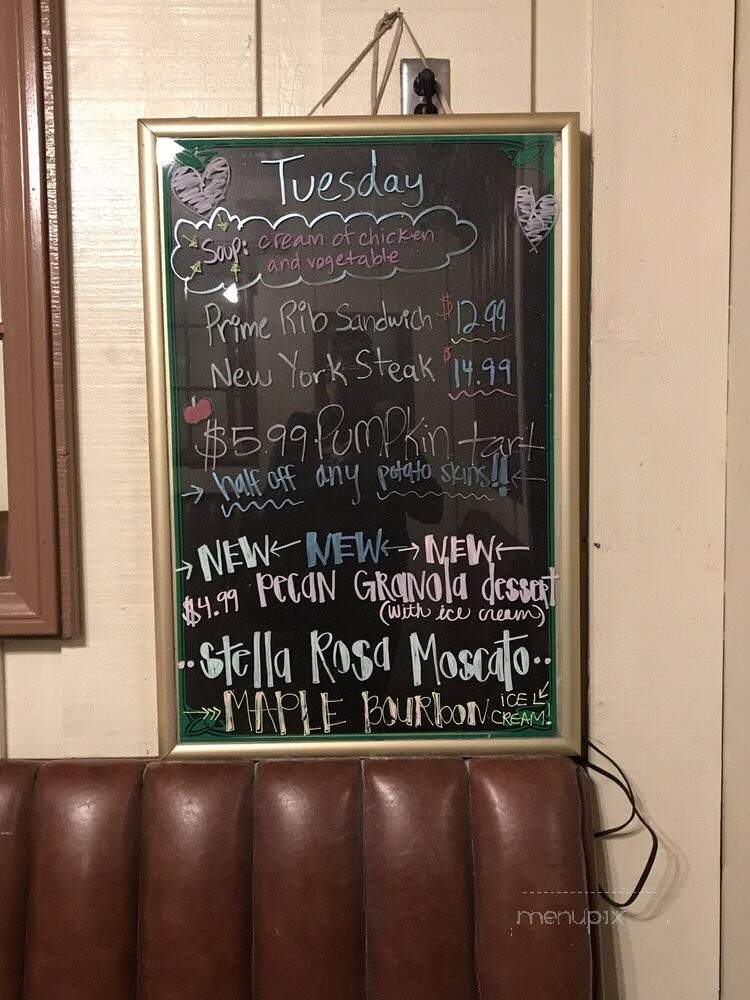 Tuesday
Soup: cream of chicken
and vegetable
Prime Rib Sandwich $12.99
New York Steak $14.99
$5.99 Pumpkin tart
→ half off any potato skins!! ←
→ NEW ← NEW ← → NEW ←
$4.99 Pecan Granola dessert
(with ice cream)
·· Stella Rosa Moscato ··
→ MAPLE BOURBON ICE
CREAM!
menupix